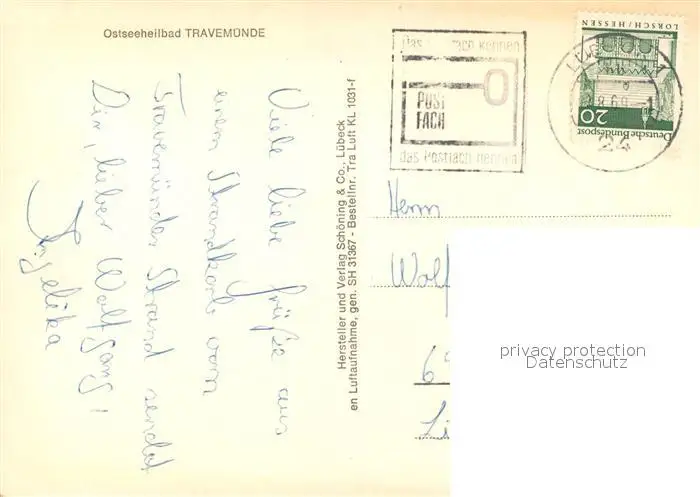 Ostseeheilbad TRAVEMÜNDE
Viele liebe Grüße aus
einem Strandkorb vom
Travemünder Strand sendet
Dir, lieber Wolfgang!
Angelika
Hersteller und Verlag Schöning & Co., Lübeck
en Luftaufnahme, gen. SH 31367 - Bestellnr. Tra Luft KL 1031-f
Das kennen
POST
FACH
das Postfach nennen
LORSCH/HESSEN
Deutsche Bundespost
20
8.69-1
24
Herrn
Wolf
6
Li
privacy protection
Datenschutz